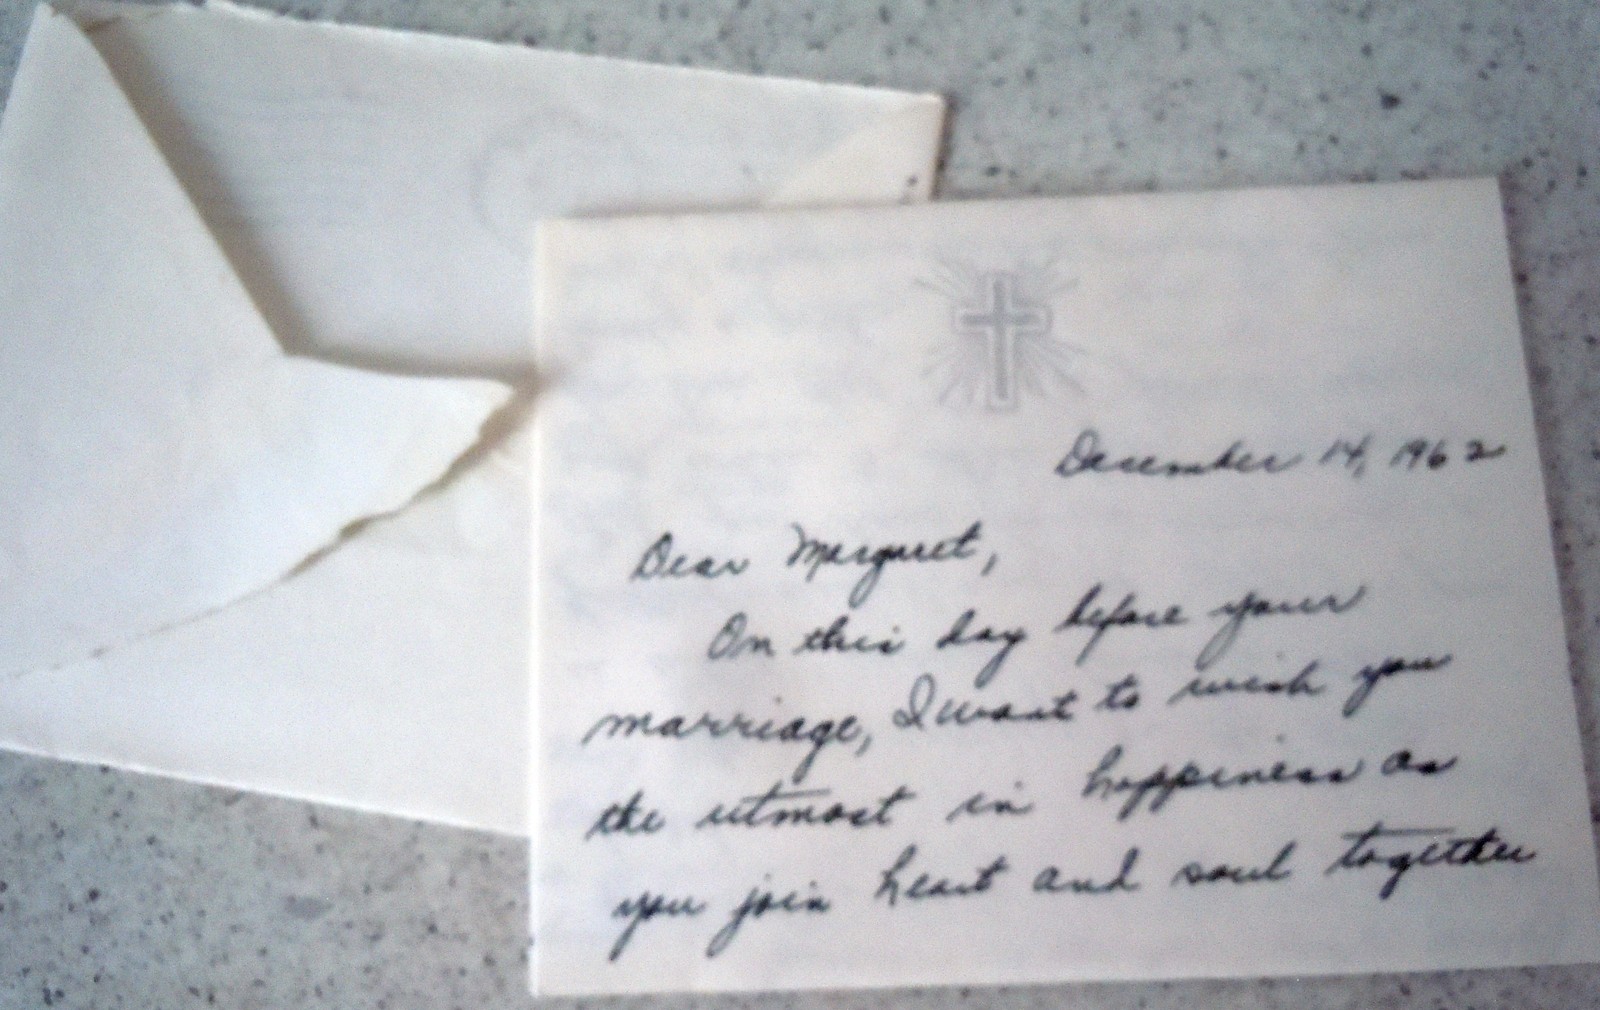 December 14, 1962
Dear Margaret,
On this day before your
marriage, I want to wish you
the utmost in happiness as
you join heart and soul together